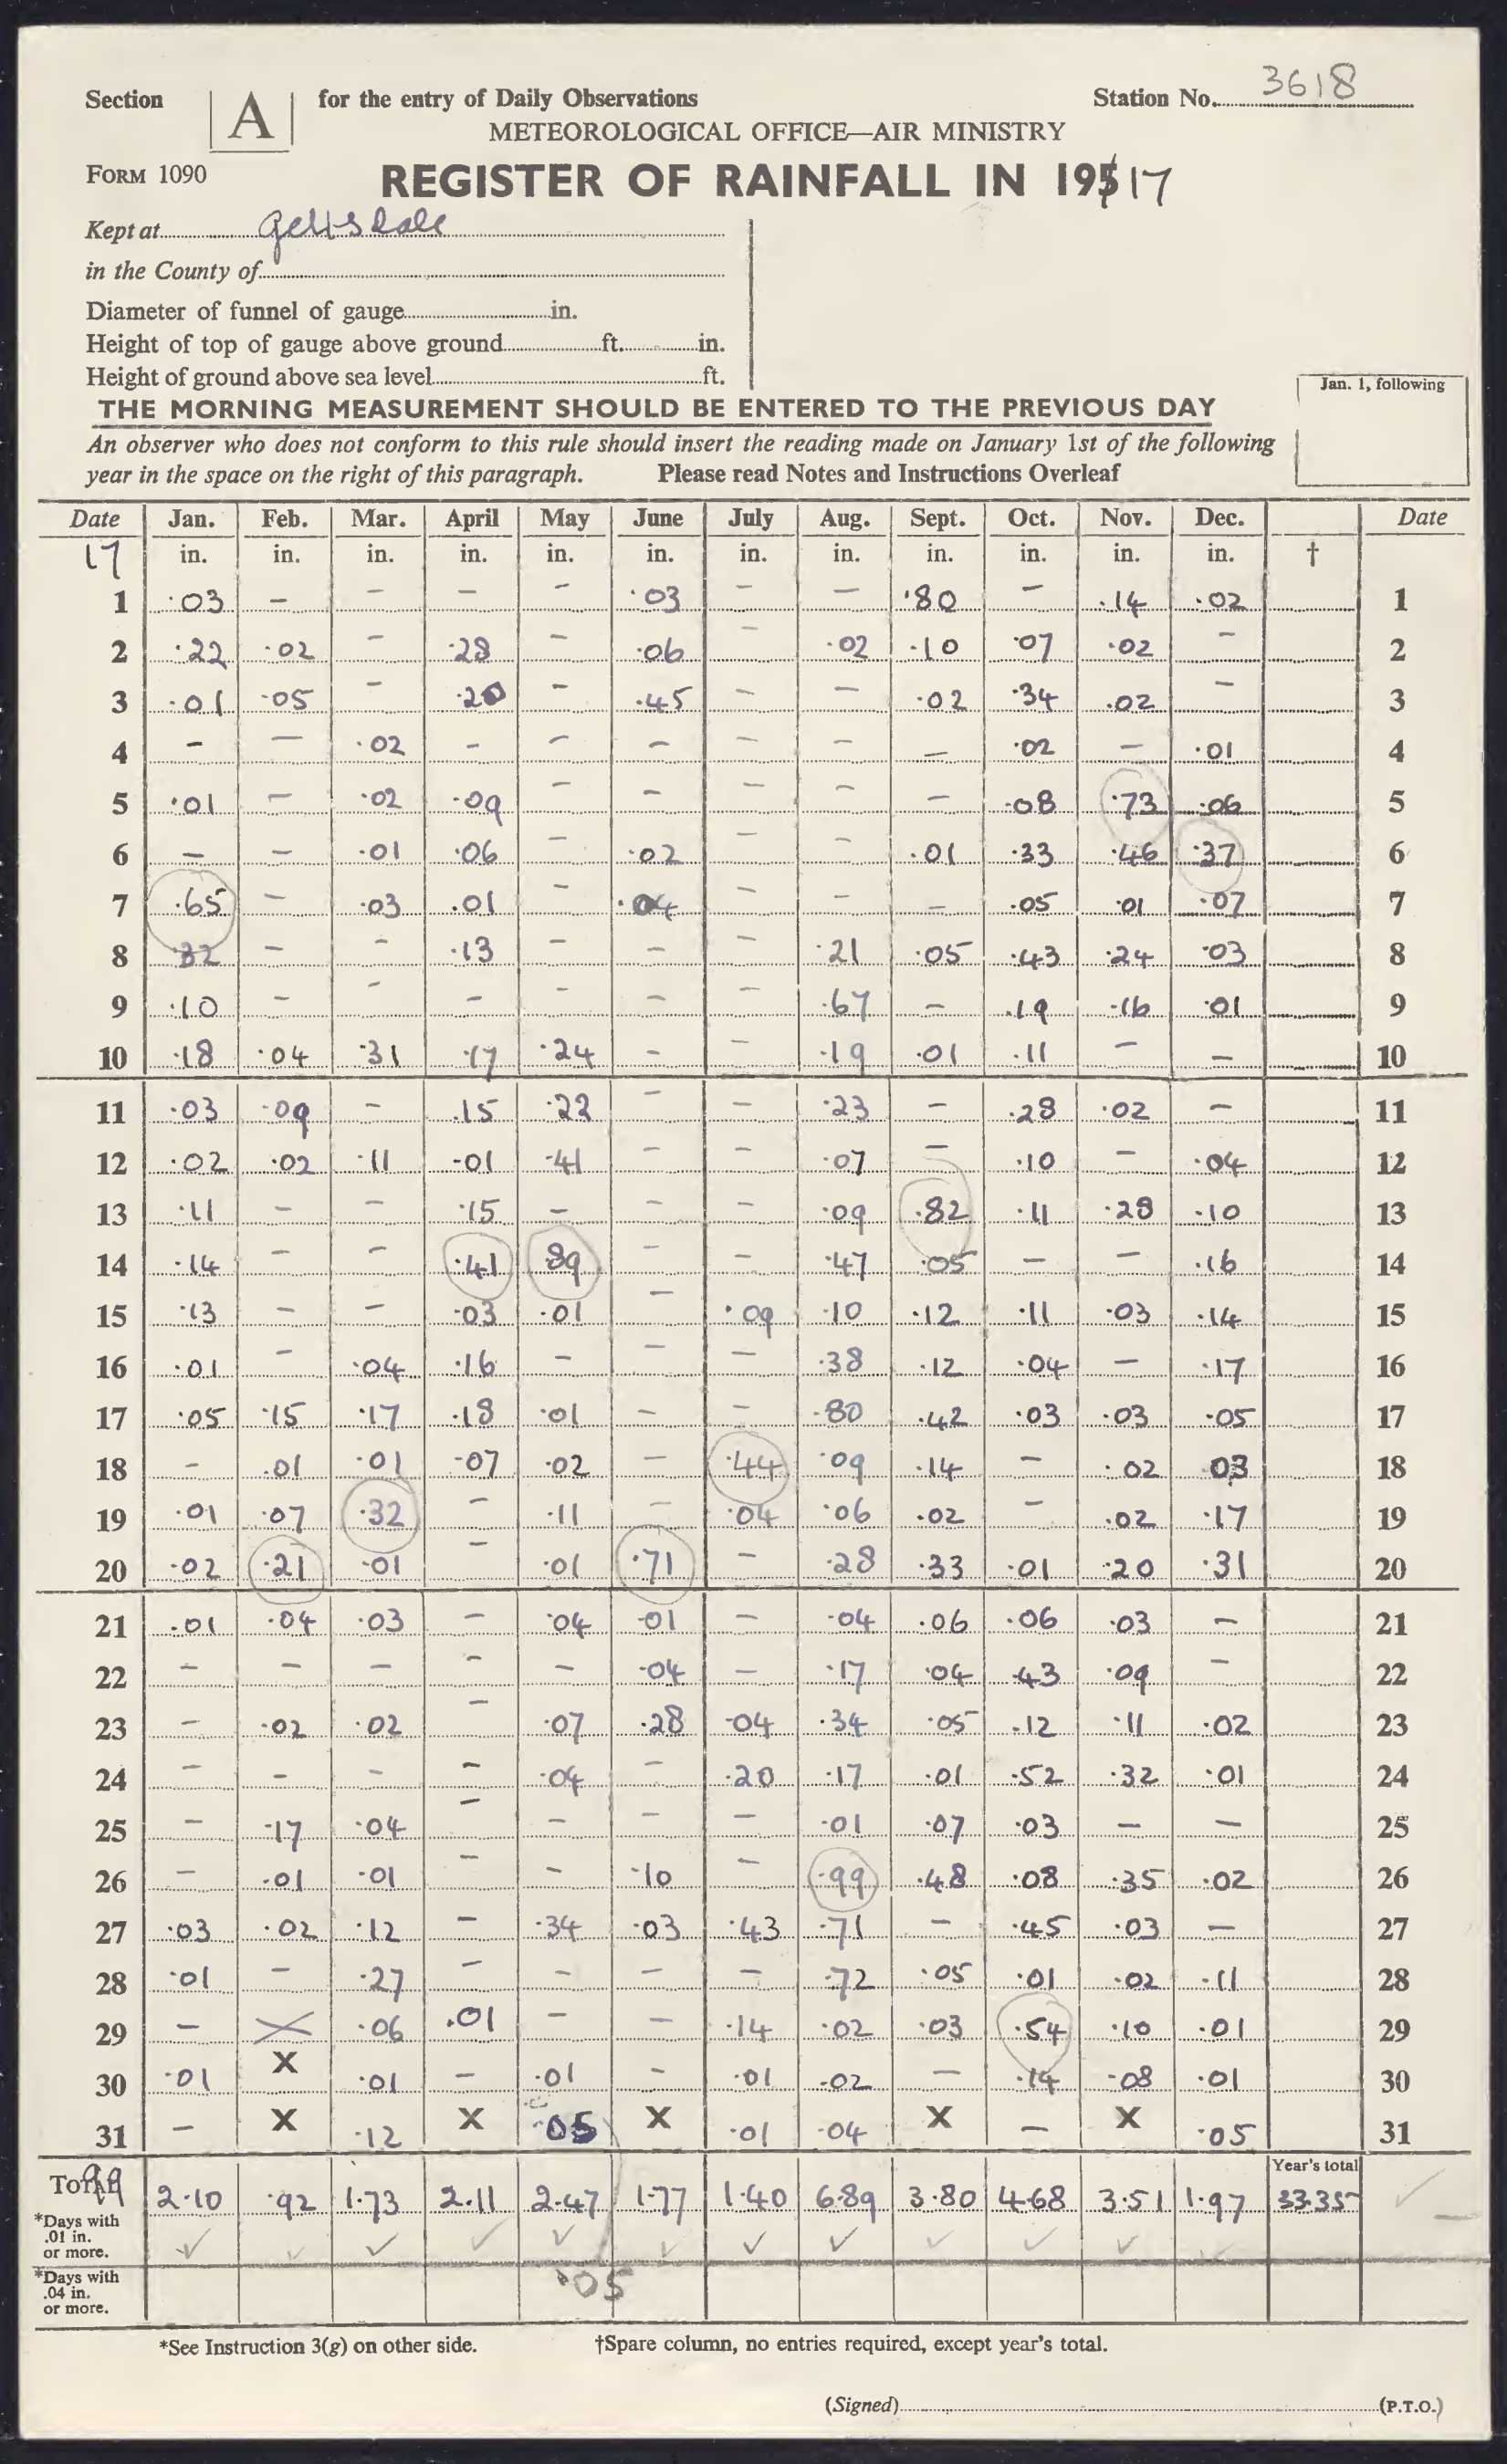 Section A for the entry of Daily Observations Station No. 3618
METEOROLOGICAL OFFICE—AIR MINISTRY
FORM 1090 REGISTER OF RAINFALL IN 195 17
Kept at Geltsdale
in the County of
Diameter of funnel of gauge in.
Height of top of gauge above ground ft. in.
Height of ground above sea level ft.
Jan. 1, following
THE MORNING MEASUREMENT SHOULD BE ENTERED TO THE PREVIOUS DAY
An observer who does not conform to this rule should insert the reading made on January 1st of the following
year in the space on the right of this paragraph. Please read Notes and Instructions Overleaf
Date Jan. Feb. Mar. April May June July Aug. Sept. Oct. Nov. Dec. Date
17 in. in. in. in. in. in. in. in. in. in. in. in. †
1 .03 - - - - .03 - - .80 - .14 .02 1
2 .22 .02 - .28 - .06 - .02 .10 .07 .02 - 2
3 .01 .05 - .20 - .45 - - .02 .34 .02 - 3
4 - - .02 - - - - - - .02 - .01 4
5 .01 - .02 .09 - - - - - .08 .73 .06 5
6 - - .01 .06 - .02 - - .01 .33 .46 .37 6
7 .65 - .03 .01 - .04 - - - .05 .01 .07 7
8 .32 - - .13 - - - .21 .05 .43 .24 .03 8
9 .10 - - - - - - .67 - .19 .16 .01 9
10 .18 .04 .31 .17 .24 - - .19 .01 .11 - - 10
11 .03 .09 - .15 .22 - - .23 - .28 .02 - 11
12 .02 .02 .11 .01 .41 - - .07 - .10 - .04 12
13 .11 - - .15 - - - .09 .82 .11 .28 .10 13
14 .14 - - .41 .89 - - .47 .05 - - .16 14
15 .13 - - .03 .01 - .09 .10 .12 .11 .03 .14 15
16 .01 - .04 .16 - - - .38 .12 .04 - .17 16
17 .05 .15 .17 .18 .01 - - .80 .42 .03 .03 .05 17
18 - .01 .01 .07 .02 - .44 .09 .14 - .02 03 18
19 .01 .07 .32 - .11 - .04 .06 .02 - .02 .17 19
20 .02 .21 .01 - .01 .71 - .28 .33 .01 .20 .31 20
21 .01 .04 .03 - .04 .01 - .04 .06 .06 .03 - 21
22 - - - - - .04 - .17 .04 .43 .09 - 22
23 - .02 .02 - .07 .28 .04 .34 .05 .12 .11 .02 23
24 - - - - .04 - .20 .17 .01 .52 .32 .01 24
25 - .17 .04 - - - - .01 .07 .03 - - 25
26 - .01 .01 - - .10 - .99 .48 .08 .35 .02 26
27 .03 .02 .12 - .34 .03 .43 .71 - .45 .03 - 27
28 .01 - .27 - - - - .72 .05 .01 .02 .11 28
29 - X .06 .01 - - .14 .02 .03 .54 .10 .01 29
30 .01 X .01 - .01 - .01 .02 - .14 .08 .01 30
31 - X .12 X .05 X .01 .04 X - X .05 31
Year's total
Total 2.10 .92 1.73 2.11 2.47 1.77 1.40 6.89 3.80 4.68 3.51 1.97 33.35
*Days with
.01 in.
or more.
*Days with
.04 in.
or more.
.05
*See Instruction 3(g) on other side. †Spare column, no entries required, except year's total.
(Signed) (P.T.O.)